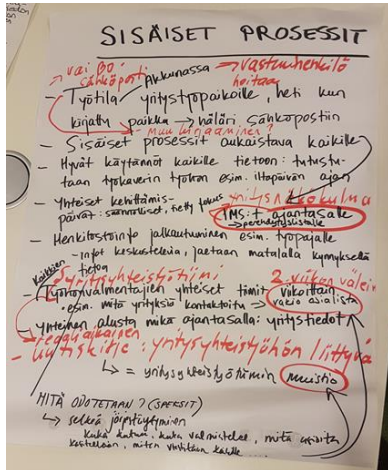 SISÄISET PROSESSIT
→ vai BO
sähköposti
Akkunassa
→ vastuuhenkilö
hoitaa
- Työtila yritystyöpaikoille, heti kun
kirjattu paikka → häläri sähköpostiin
- muu kirjaaminen?
- Sisäiset prosessit aukaistava kaikille
- Hyvät käytännöt kaikille tietoon: tutustu-
taan työkaverin työhön esim. iltapäivän ajan
yritysnäkökulma
- Yhteiset kehittämis-
päivät: säännölliset, tietty fokus
TMS:t ajantasalle
→ perehdytyslistalle
- Henkilöstöinfo jalkautuminen esim. työpajalle
- infot keskustelevia, jaetaan matalalla kynnyksellä
kaikkien tietoa
yritysyhteistyötiimi
2. viikon välein
- Työhönvalmentajien yhteiset tiimit viikottain
- esim. mitä yrityksiä kontaktoitu → vaihto asialista
- yhteinen alusta mikä ajantasalla: yritystiedot
reaaliaikainen
- uutiskirje: yritysyhteistyöhön liittyvä
↳ = yritysyhteistyötiimin muistio
MITÄ ODOTETAAN? (SPEKSIT)
↳ selkeä
kuka kutsuu, kuka valmistelee, mitä asioita
käsitellään, miten